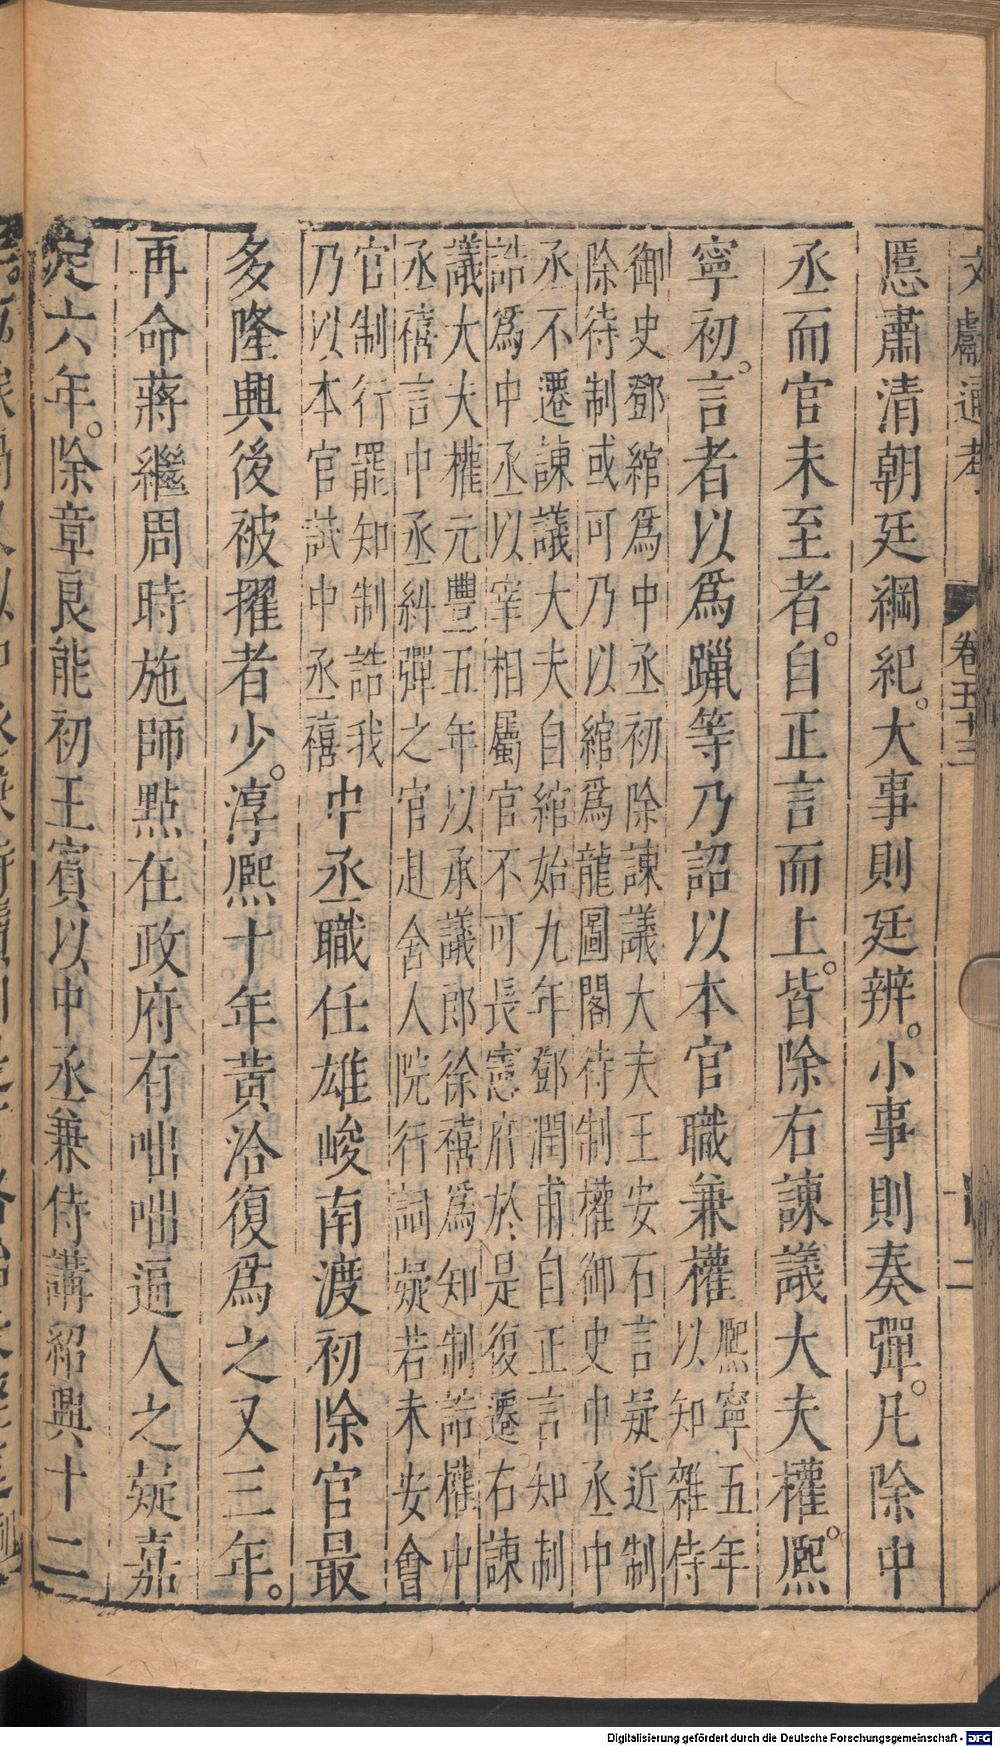 文獻通考 卷五十三 二
慝肅清朝廷綱紀。大事則廷辨。小事則奏彈。凡除中
丞而官未至者。自正言而上。皆除右諫議大夫權。熙
寧初。言者以爲躐等乃詔以本官職兼權
熙寧五年
以知雜侍
御史鄧綰爲中丞初除諫議大夫王安石言疑近制
除待制或可乃以綰爲龍圖閣待制權御史中丞中
丞不遷諫議大夫自綰始九年鄧潤甫自正言知制
誥爲中丞以宰相屬官不可長憲府於是復遷。右諫
議大夫權元豐五年以承議郎徐禧爲知制誥權中
丞禧言中丞糾彈之官赴舍人院行詞疑若未安會
官制行罷知制誥我
乃以本官試中丞禧
中丞職任雄峻南渡初除官最
多隆興後被擢者少。淳熙十年黃洽復爲之又三年。
再命蔣繼周時施師點在政府有咄咄逼人之疑嘉
定六年。除章良能初王賓以中丞兼侍講紹興十二
Digitalisierung gefördert durch die Deutsche Forschungsgemeinschaft - DFG